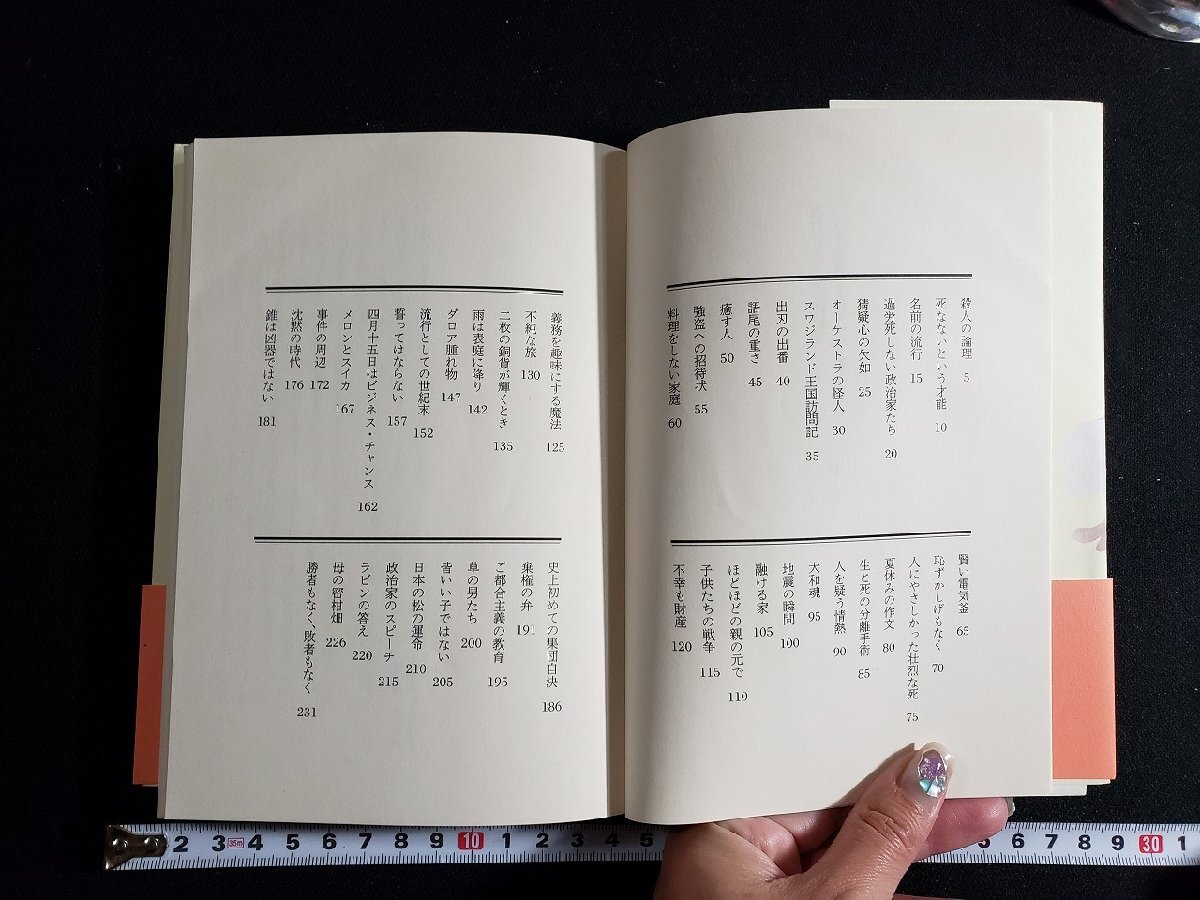 殺人の論理 5
死なないという才能 10
名前の流行 15
過労死しない政治家たち 20
猜疑心の欠如 25
オーケストラの怪人 30
スワジランド王国訪問記 35
出刃の出番 40
語尾の重さ 45
癒す人 50
強盗への招待状 55
料理をしない家庭 60
賢い電気釜 65
恥ずかしげもなく 70
人にやさしかった壮烈な死 75
夏休みの作文 80
生と死の分離手術 85
人を疑う情熱 90
大和魂 95
地震の瞬間 100
融ける家 105
ほどほどの親の元で 110
子供たちの戦争 115
不幸も財産 120
義務を趣味にする魔法 125
不純な旅 130
二枚の銅貨が輝くとき 135
雨は表庭に降り 142
ダロア腫れ物 147
流行としての世紀末 152
誓ってはならない 157
四月十五日はビジネス・チャンス 162
メロンとスイカ 167
事件の周辺 172
沈黙の時代 176
錐は凶器ではない 181
史上初めての集団自決 186
棄権の弁 191
ご都合主義の教育 195
草の男たち 200
皆いい子ではない 205
日本の松の運命 210
政治家のスピーチ 215
ラビンの答え 220
母の密柑畑 226
勝者もなく、敗者もなく 231
2 3 35m 4 5 6 7 8 9 10 1 2 3 4 5
5 6 7 8 9 30 1